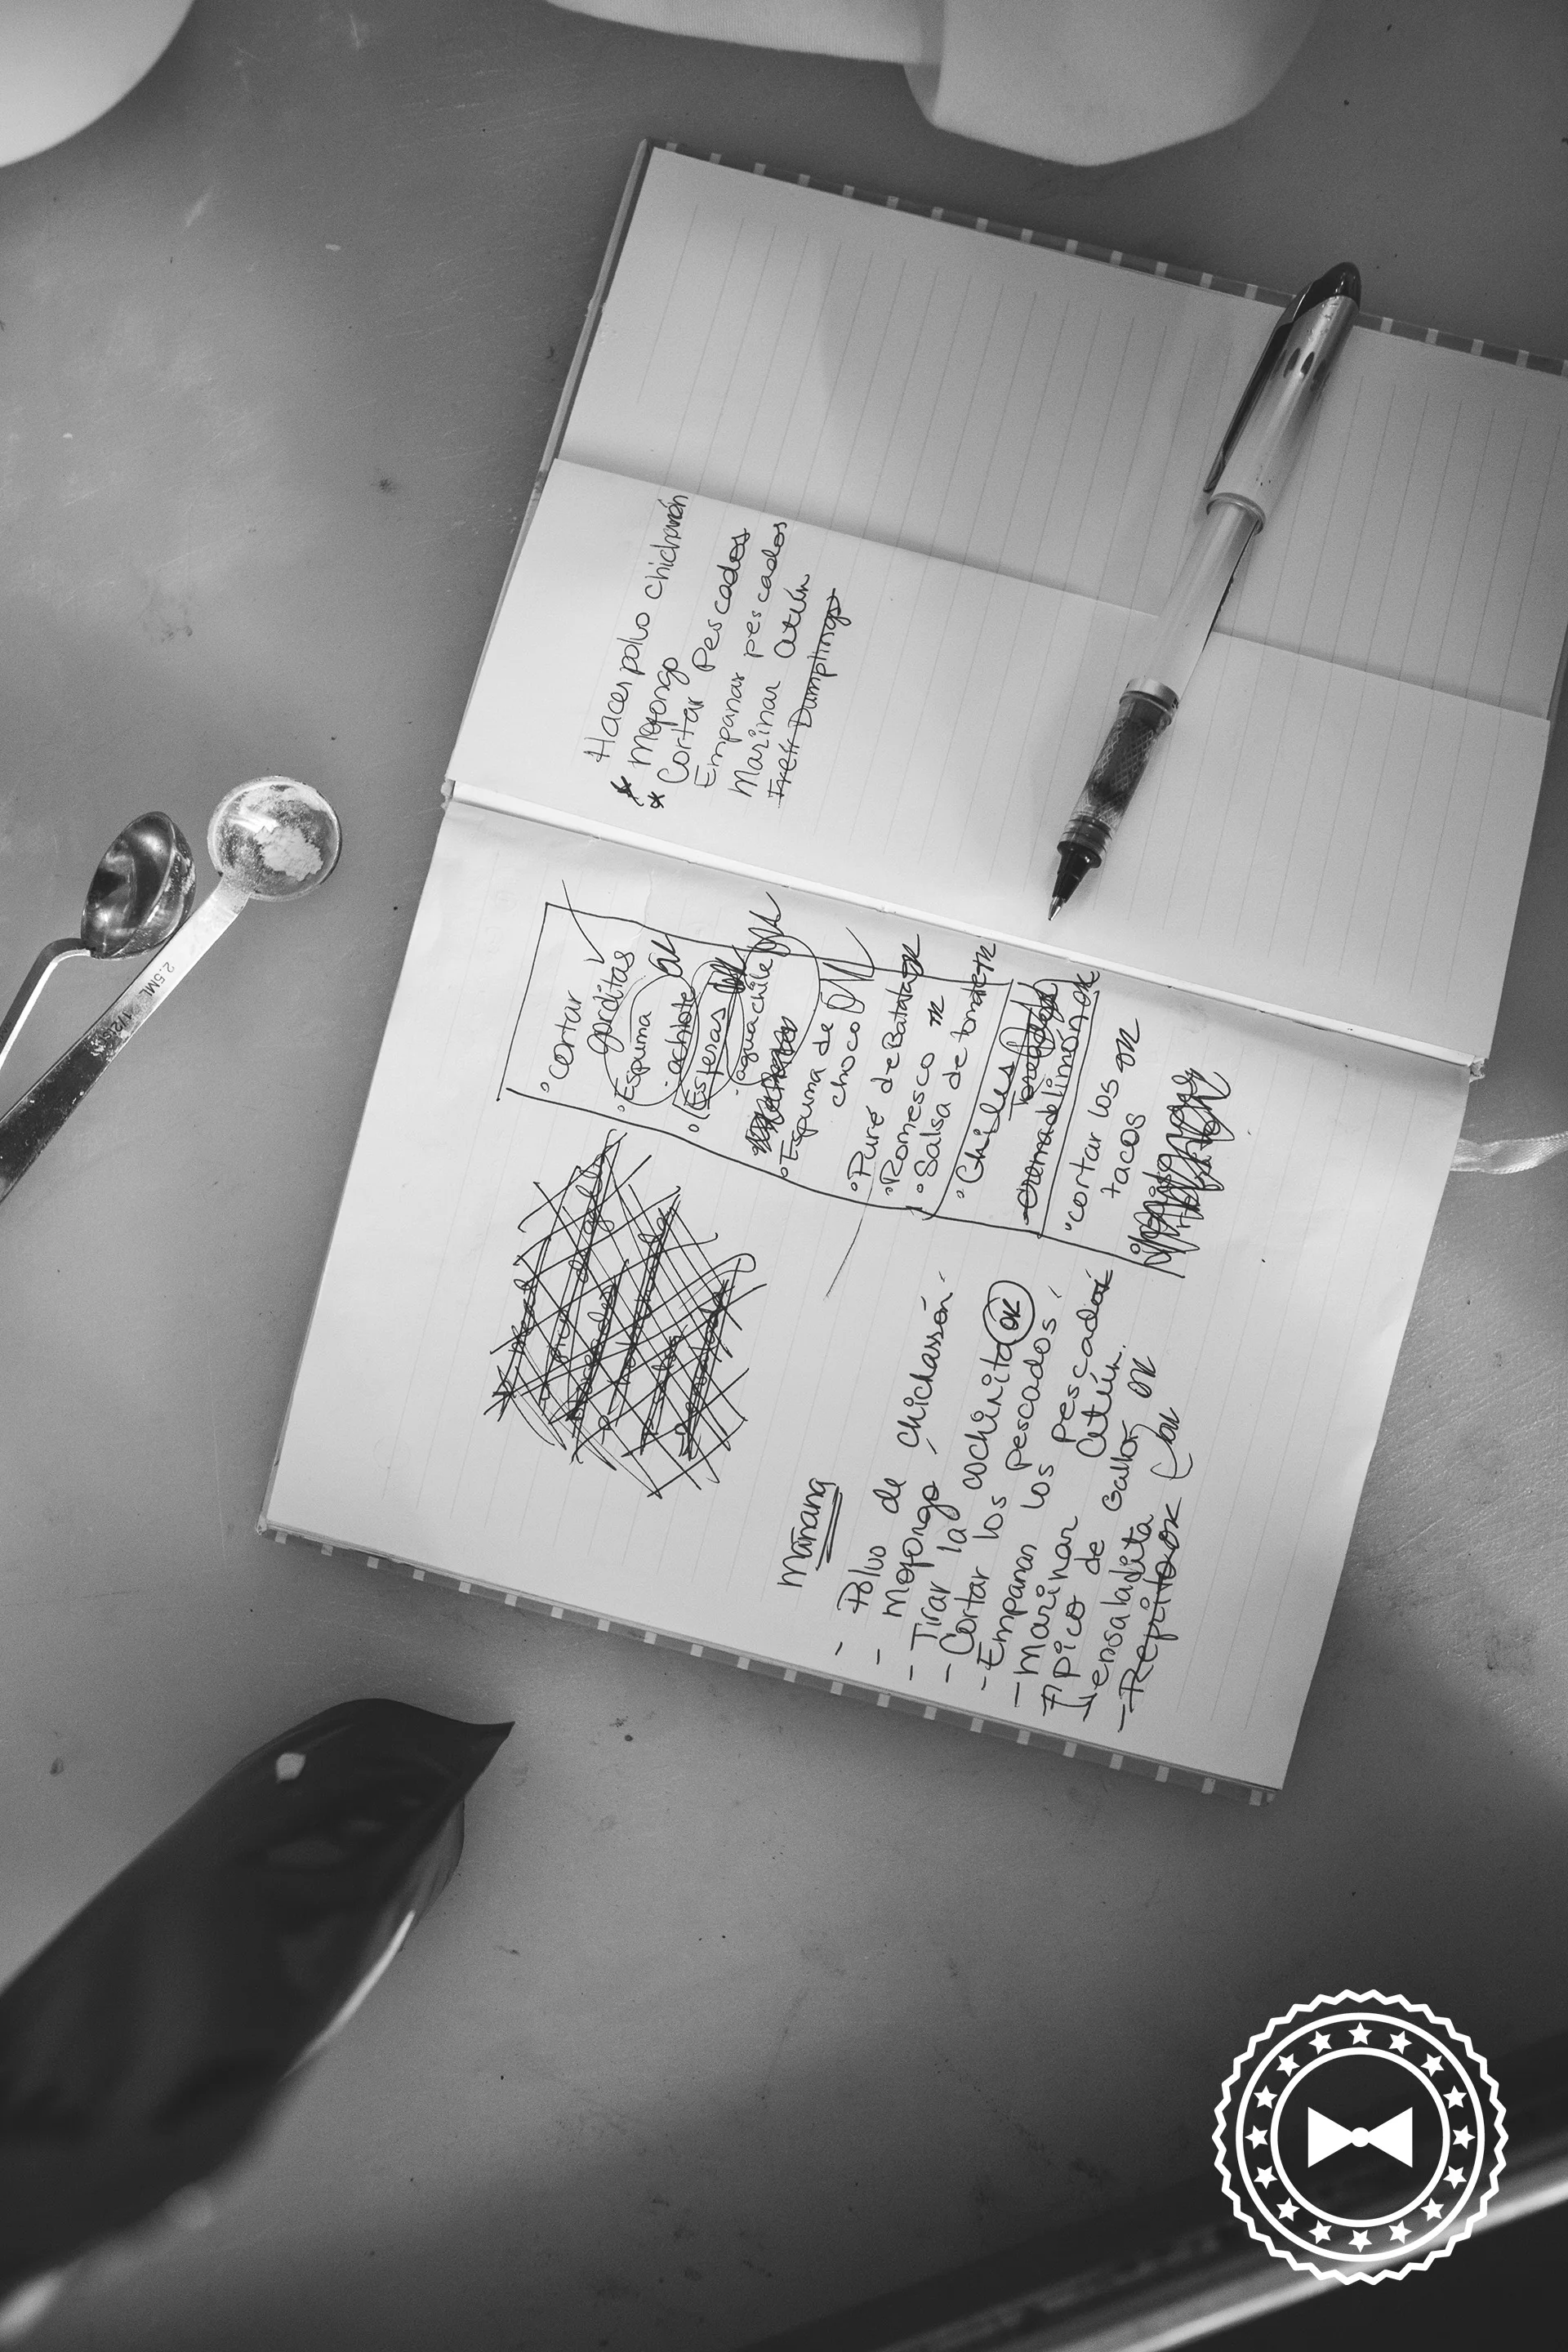 Hacer polvo chicharrón
* Mofongo
* Cortar Pescados
Empanar pescados
Marinar atún
Freír Dumplings
° cortar
gorditas
° Espuma
achiote OK
° Esferas OK
aguachile OK
° Espuma de
choco OK
° Puré de Batata OK
° Romesco OK
° Salsa de tomate OK
° Chiles
Toreados
crema de limón OK
° cortar los OK
tacos
Mañana
- Polvo de chicharrón
- Mofongo
- Tirar la cochinita OK
- Cortar los pescados
- Empanar los pescados
- Marinar atún.
pico de Gallo OK
ensaladita OK
- Repito OK
2.5ML 1/2